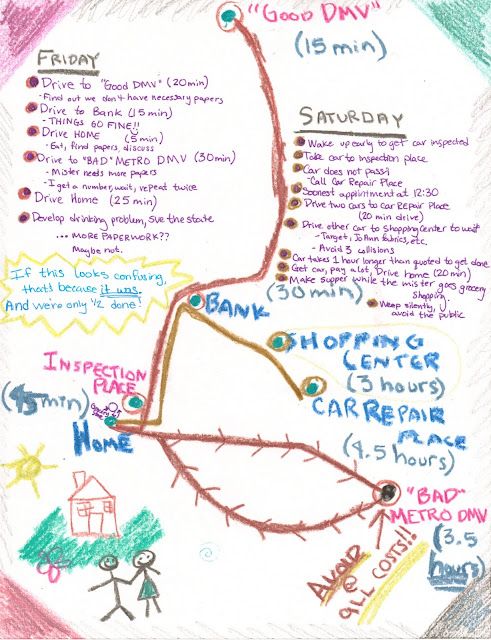 "GOOD DMV"
(15 min)
FRIDAY
Drive to "Good DMV" (20min)
- Find out we don't have necessary papers
Drive to Bank (15min)
- THINGS GO FINE!!
Drive HOME (5min)
- Eat, find papers, discuss
Drive to "BAD" METRO DMV (30min)
- Mister needs more papers
- I get a number, wait, repeat twice
Drive Home (25 min)
Develop drinking problem, sue the state
... MORE PAPERWORK??
Maybe not.
SATURDAY
Wake up early to get car inspected
Take car to inspection place
Car does not pass!
- Call Car Repair Place
Soonest appointment at 12:30
Drive two cars to Car Repair Place
(20 min drive)
Drive other car to shopping Center to wait
- Target, JoAnn fabrics, etc.
- Avoid 3 collisions
Car takes 1 hour longer than quoted to get done
Get car, pay a lot, Drive home (20min)
Make supper while the mister goes grocery
shopping.
Weep silently,
avoid the public
If this looks confusing,
that's because it was.
And we're only 1/2 done!
(30 min)
BANK
SHOPPING
CENTER
(3 hours)
INSPECTION
PLACE
(45 min)
HOME
CAR REPAIR
PLACE
(4.5 hours)
"BAD"
METRO DMV
(3.5
hours)
AVOID
@
ALL COSTS!!